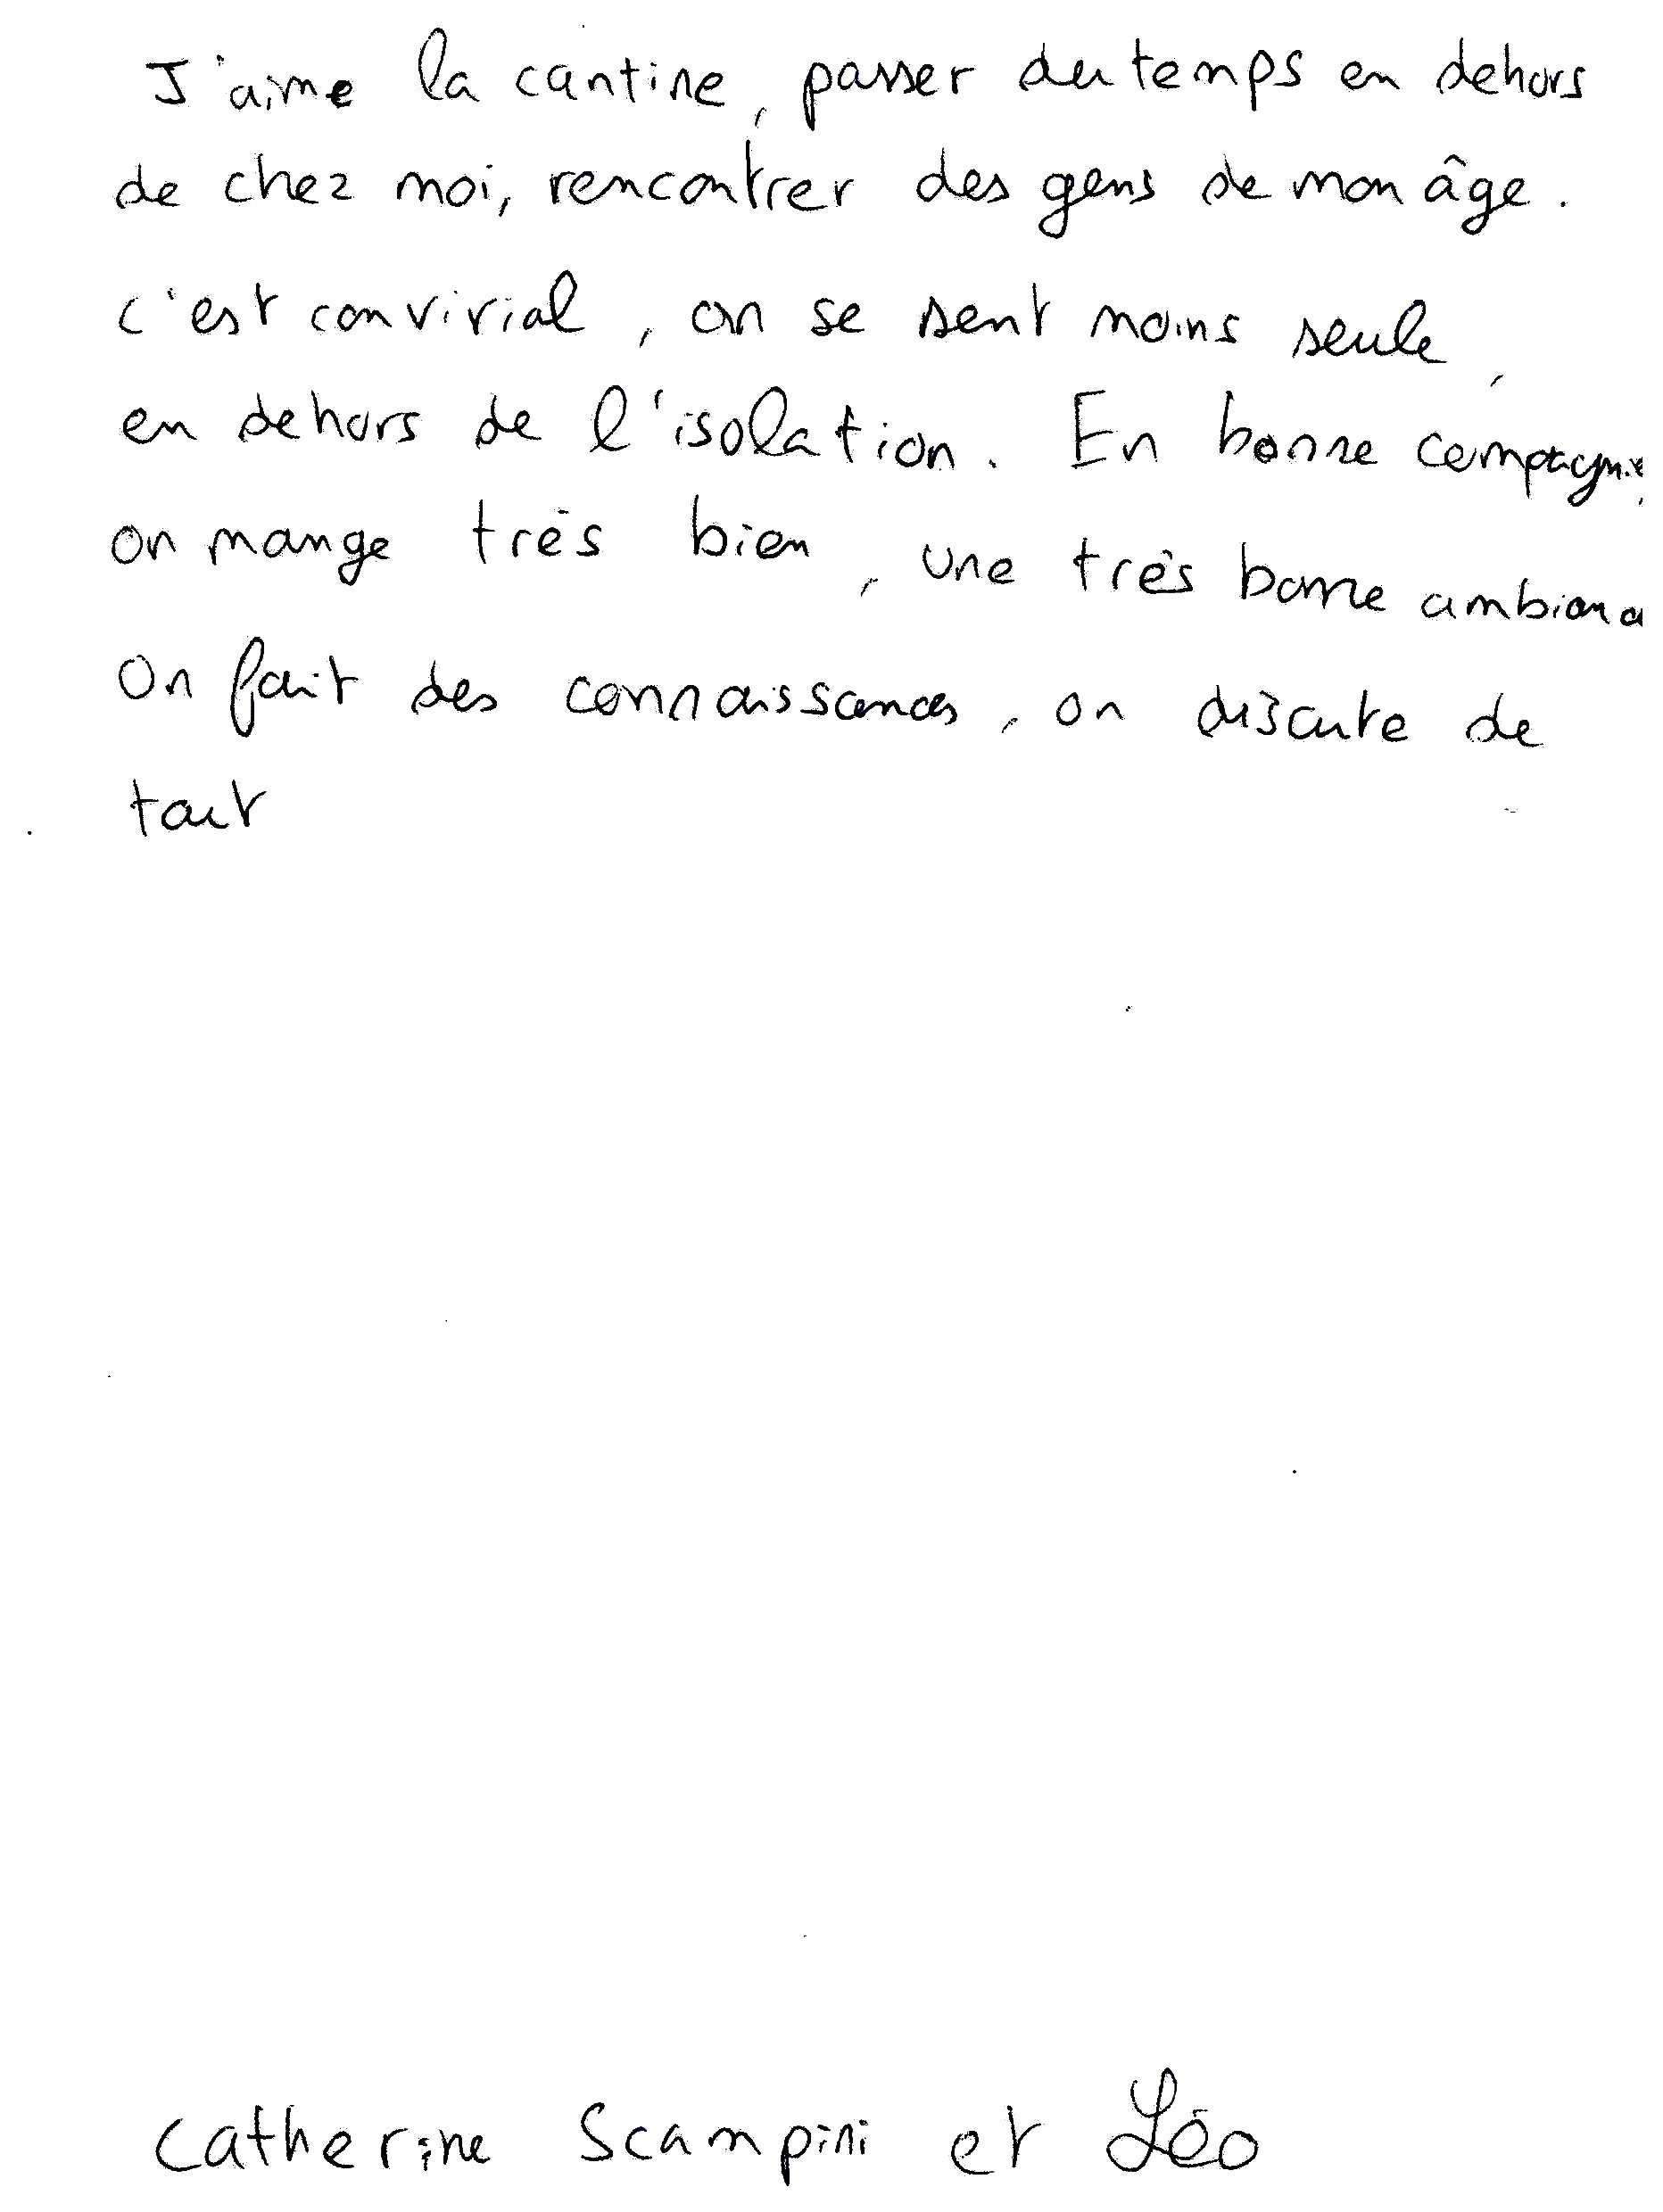 J'aime la cantine, passer du temps en dehors
de chez moi, rencontrer des gens de mon âge.
c'est convivial, on se sent moins seule,
en dehors de l'isolation. En bonne compagnie,
on mange très bien, une très bonne ambiance
On fait des connaissances, on discute de
tout
Catherine Scampini et Léo